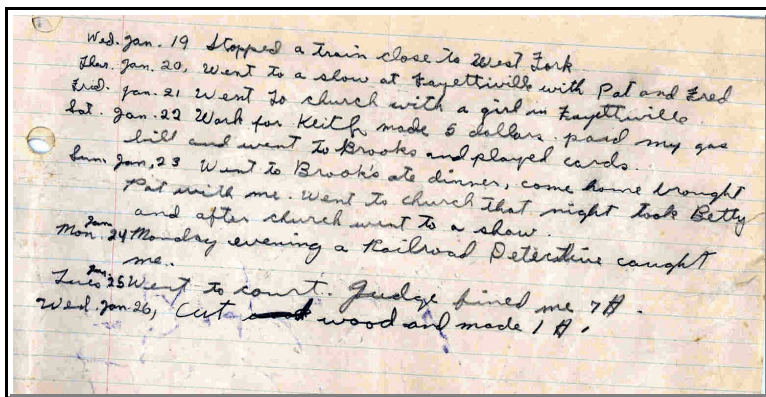 Wed. Jan. 19 Stopped a train close to West Fork
Thur. Jan. 20, Went to a show at Fayettiville with Pat and Fred
Frid. Jan. 21 Went to church with a girl in Fayettiville.
Sat. Jan. 22 Work for Keith made 5 dollars. paid my gas
bill and went to Brooks and played cards.
Sun. Jan, 23 Went to Brook's ate dinner, come home brought
Pat with me. Went to church that night took Betty
and after church went to a show.
Mon. Jan. 24 Monday evening a Railroad Detective caught
me..
Tues Jan. 25 Went to court. Judge fined me 7 $.
Wed. Jan. 26, Cut wood and made 1 $.